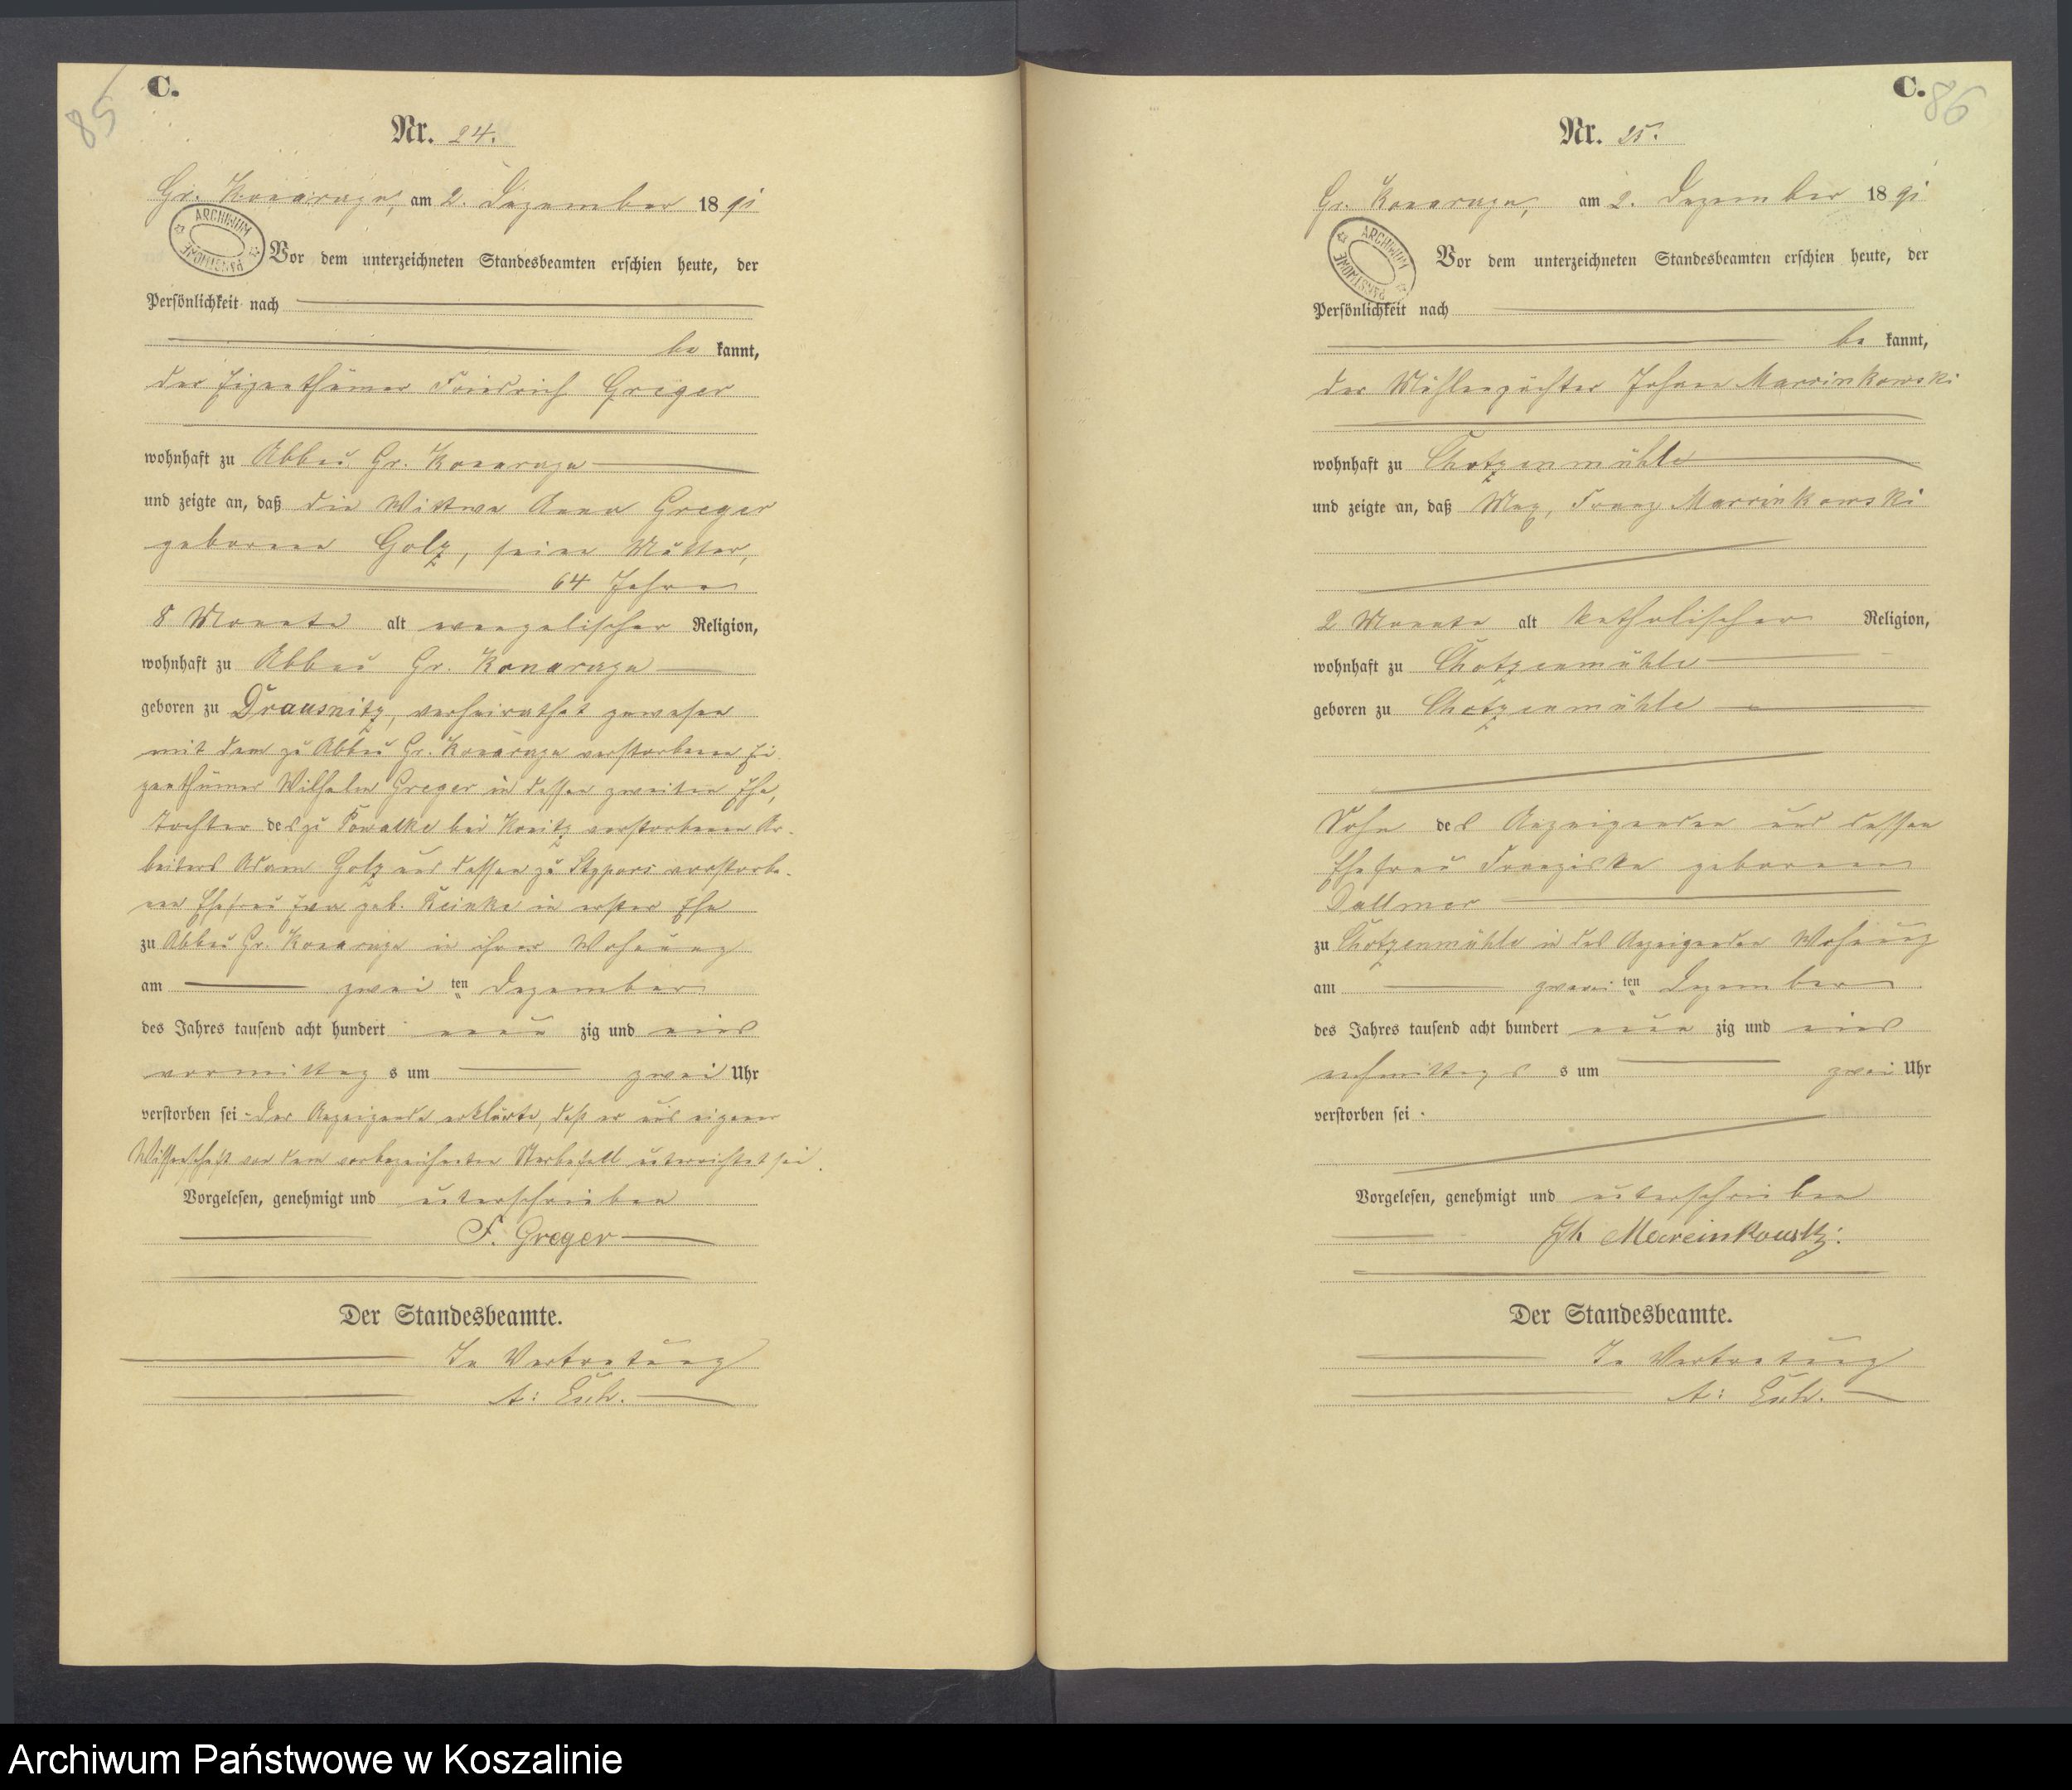 85
C.
Nr. 24.
Gr. Konarczyn, am 2. Dezember 1891
ARCHIWUM PAŃSTWOWE
Vor dem unterzeichneten Standesbeamten erschien heute, der
Persönlichkeit nach
be kannt,
der Eigenthümer Friedrich Greger
wohnhaft zu Abbau Gr. Konarczyn
und zeigte an, daß die Wittwe Anna Greger
geborene Golz, seine Mutter,
64 Jahre
8 Monate alt evangelischer Religion,
wohnhaft zu Abbau Gr. Konarczyn
geboren zu Drausnitz, verheirathet gewesen
mit dem zu Abbau Gr. Konarczyn verstorbenen Ei
genthümer Wilhelm Greger in dessen zweiten Ehe,
Tochter des zu Powalke bei Konitz verstorbenen Ar-
beiters Adam Golz und dessen zu verstorbe-
nen Ehefrau Eva geb. in erster Ehe
zu Abbau Gr. Konarczyn in ihrer Wohnung
am zwei ten Dezember
des Jahres tausend acht hundert neun zig und eins
vormittag s um zwei Uhr
verstorben sei. Der Anzeigende erklärte, daß er aus eigener
Wissenschaft von dem vorbezeichneten Sterbefall unterrichtet sei.
Vorgelesen, genehmigt und unterschrieben
F. Greger
Der Standesbeamte.
In Vertretung
A:
C.
86
Nr. 25.
Gr. Konarczyn, am 2. Dezember 1891
ARCHIWUM PAŃSTWOWE
Vor dem unterzeichneten Standesbeamten erschien heute, der
Persönlichkeit nach
be kannt,
der Mühlenpächter Johann Marcinkowski
wohnhaft zu Chotzenmühle
und zeigte an, daß Max, Franz Marcinkowski
2 Monate alt katholischer Religion,
wohnhaft zu Chotzenmühle
geboren zu Chotzenmühle
Sohn des Anzeigenden und dessen
Ehefrau Franziska geborenen
Dallmer
zu Chotzenmühle in des Anzeigenden Wohnung
am zwei ten Dezember
des Jahres tausend acht hundert neun zig und eins
nachmittags s um zwei Uhr
verstorben sei.
Vorgelesen, genehmigt und unterschrieben
Joh Marcinkowski
Der Standesbeamte.
In Vertretung
A:
Archiwum Państwowe w Koszalinie